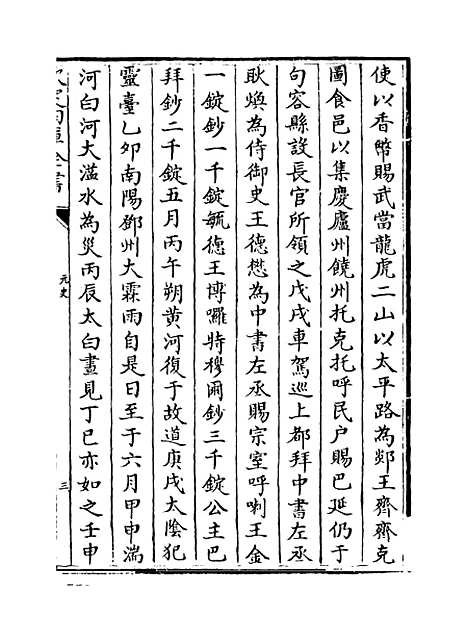 使以香幣賜武當龍虎二山以太平路為郯王齊齊克
圖食邑以集慶廬州饒州托克托呼民戶賜巴延仍于
句容縣設長官所領之戊戌車駕巡上都拜中書左丞
耿煥為侍御史王德懋為中書左丞賜宗室呼喇王金
一錠鈔一千錠毓德王博囉特穆爾鈔三千錠公主巴
拜鈔二千錠五月丙午朔黃河復于故道庚戌太陰犯
靈臺乙卯南陽鄧州大霖雨自是日至于六月甲申湍
河白河大溢水為災丙辰太白晝見丁巳亦如之壬申
元史
三